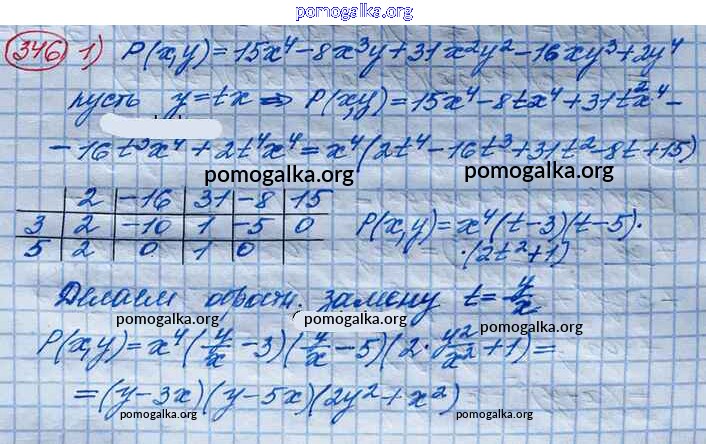 pomogalka.org
346 1) P(x,y)=15x⁴-8x³y+31x²y²-16xy³+2y⁴
пусть y=tx ⇒ P(x,y)=15x⁴-8tx⁴+31t²x⁴-
-16t³x⁴+2t⁴x⁴=x⁴(2t⁴-16t³+31t²-8t+15)
pomogalka.org pomogalka.org
2 -16 31 -8 15
3 2 -10 1 -5 0
5 2 0 1 0
P(x,y)=x⁴(t-3)(t-5)·
·(2t²+1)
Делаем обратн. замену t=y/x
pomogalka.org pomogalka.org
P(x,y)=x⁴(y/x-3)(y/x-5)(2·y²/x²+1)=
=(y-3x)(y-5x)(2y²+x²)
pomogalka.org pomogalka.org